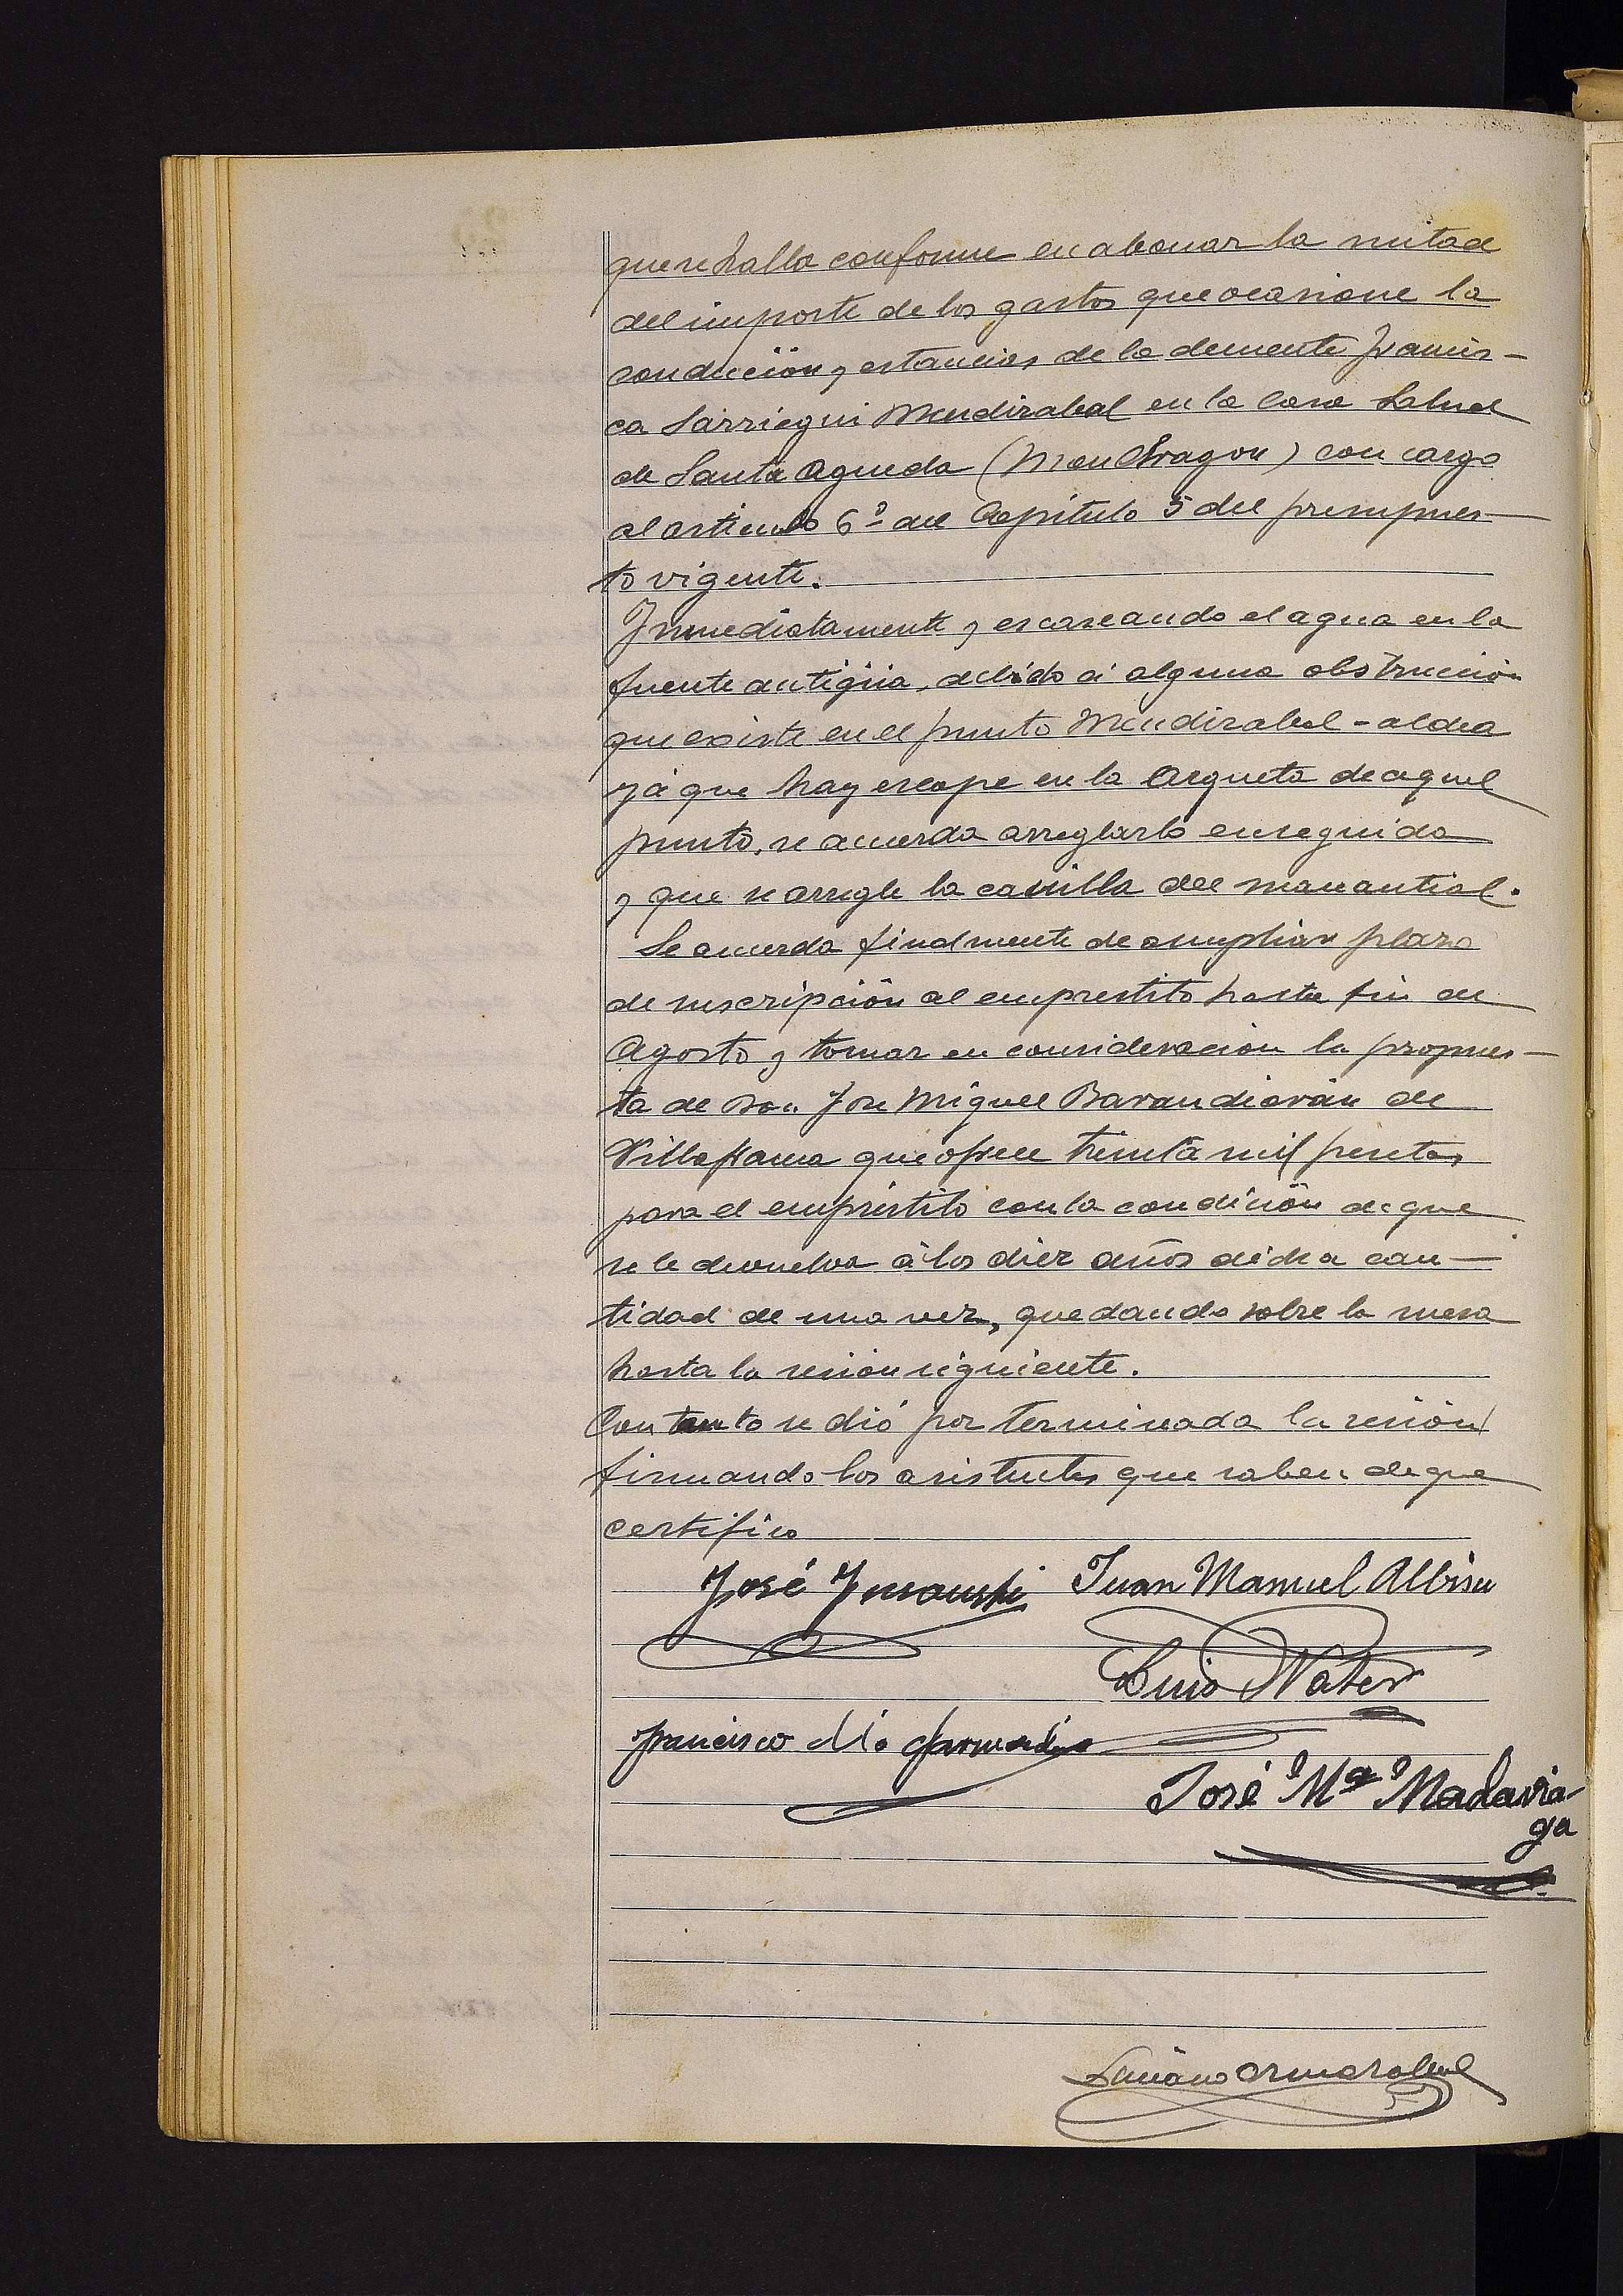 que se halla conforme en abonar la mitad
del importe de los gastos que ocasione la
conducción y estancias de la demente Francis-
ca Sarriegui Mendizabal en la Casa Salud
de Santa Agueda (Mondragon) con cargo
al articulo 6º del Capítulo 5 del presupues-
to vigente.
Inmediatamente y escaseando el agua en la
fuente antigüa, debido á alguna obstrucción
que existe en el punto Mendizabal-aldea
yá que hay escape en la Arqueta de aquel
punto, se acuerda arreglarlo enseguida
y que se arregle la casilla del manantial.
Se acuerda finalmente de ampliar plazo
de suscripción al emprestito hasta fin de
Agosto y tomar en consideración la propues-
ta de Don José Miguel Barandiarán de
Villafranca que ofrece treinta mil pesetas
para el empréstito con la condición de que
se le devuelva á los diez años dicha can-
tidad de una vez, quedando sobre la mesa
hasta la sesión siguiente.
Con tanto se dió por terminada la sesión
firmando los asistentes que saben de que
certifico
José Insausti Juan Manuel Albisu
Luis
Francisco Mª Garmendia
José Mª Madaria-
ga